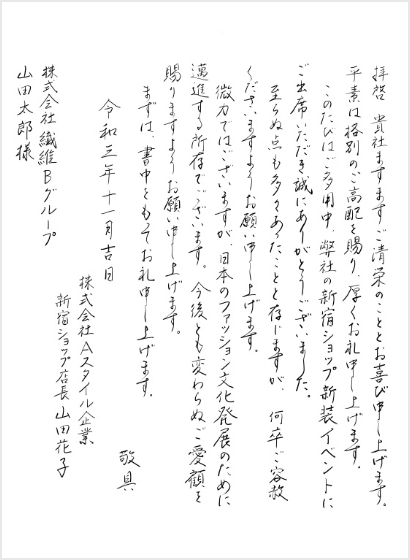 拝啓　貴社ますますご清栄のこととお喜び申し上げます。
平素は格別のご高配を賜り、厚くお礼申し上げます。
このたびはご多用中、弊社の新宿ショップ新装イベントに
ご出席いただき誠にありがとうございました。
至らぬ点も多々あったことと存じますが、何卒ご容赦
くださいますようお願い申し上げます。
微力ではございますが、日本のファッション文化発展のために
邁進する所存でございます。今後とも変わらぬご愛顧を
賜りますようお願い申し上げます。
まずは、書中をもってお礼申し上げます。
敬具
令和三年十一月吉日
株式会社Aスタイル企業
新宿ショップ店長 山田花子
株式会社 繊維Bグループ
山田太郎様